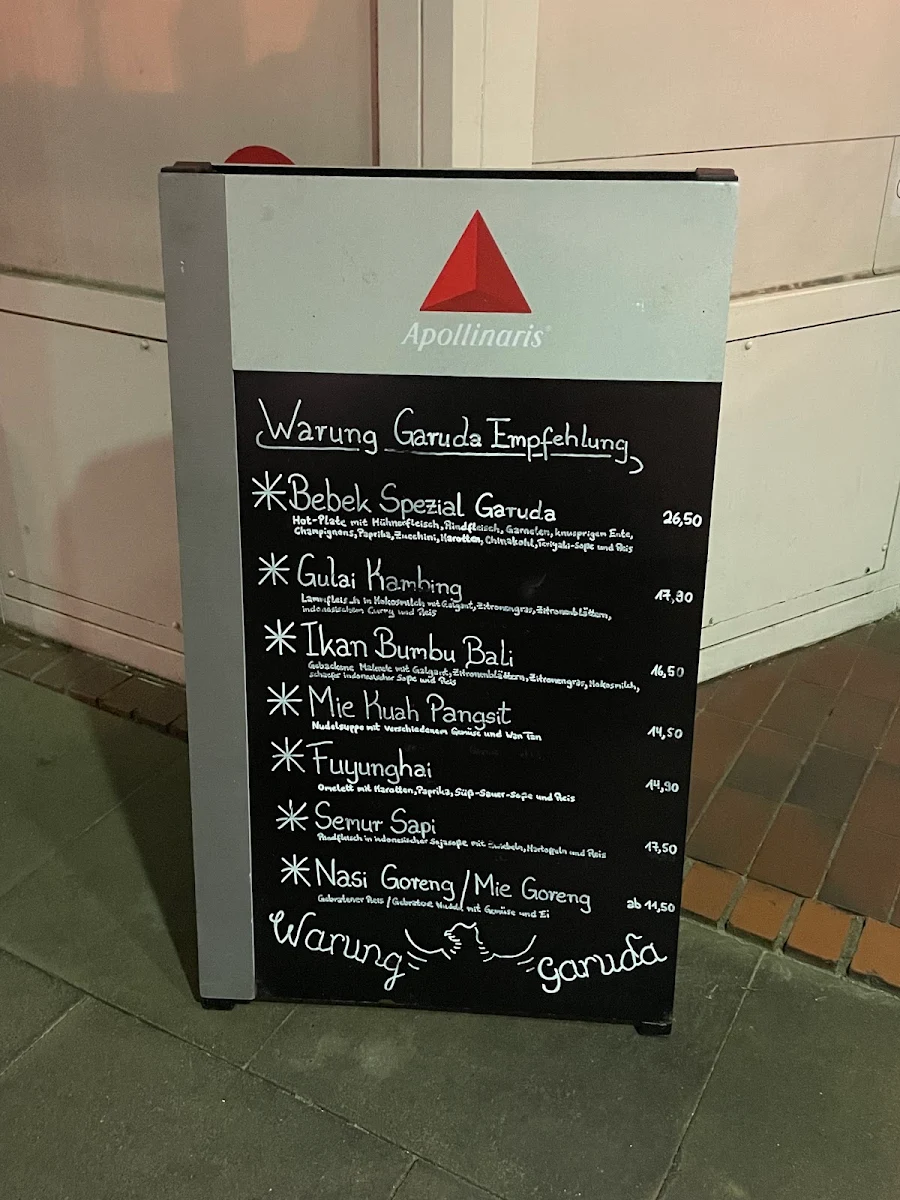 Apollinaris
Warung Garuda Empfehlung
Bebek Spezial Garuda 26,50
Hot-Plate mit Hühnerfleisch, Rindfleisch, Garnelen, knusprigen Ente,
Champignons, Paprika, Zucchini, Karotten, Chinakohl, Teriyaki-Soße und Reis
Gulai Kambing 17,90
Lammfleisch in Kokosmilch mit Galgant, Zitronengras, Zitronenblättern,
indonesischem Curry und Reis
Ikan Bumbu Bali 16,50
Gebackene Makrele mit Galgant, Zitronenblättern, Zitronengras, Kokosmilch,
scharfer indonesischer Soße und Reis
Mie Kuah Pangsit 14,50
Nudelsuppe mit verschiedenem Gemüse und Wan Tan
Fuyunghai 14,90
Omelett mit Karotten, Paprika, Süß-Sauer-Soße und Reis
Semur Sapi 17,50
Rindfleisch in indonesischer Sojasoße mit Zwiebeln, Kartoffeln und Reis
Nasi Goreng/Mie Goreng ab 11,50
Gebratener Reis / Gebratene Nudel mit Gemüse und Ei
Warung garuda